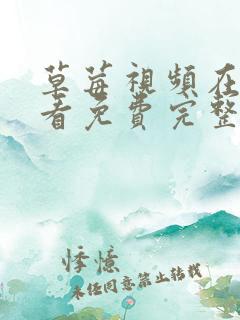 草莓視頻在
看免費完整
悸憶
未经同意禁止转载